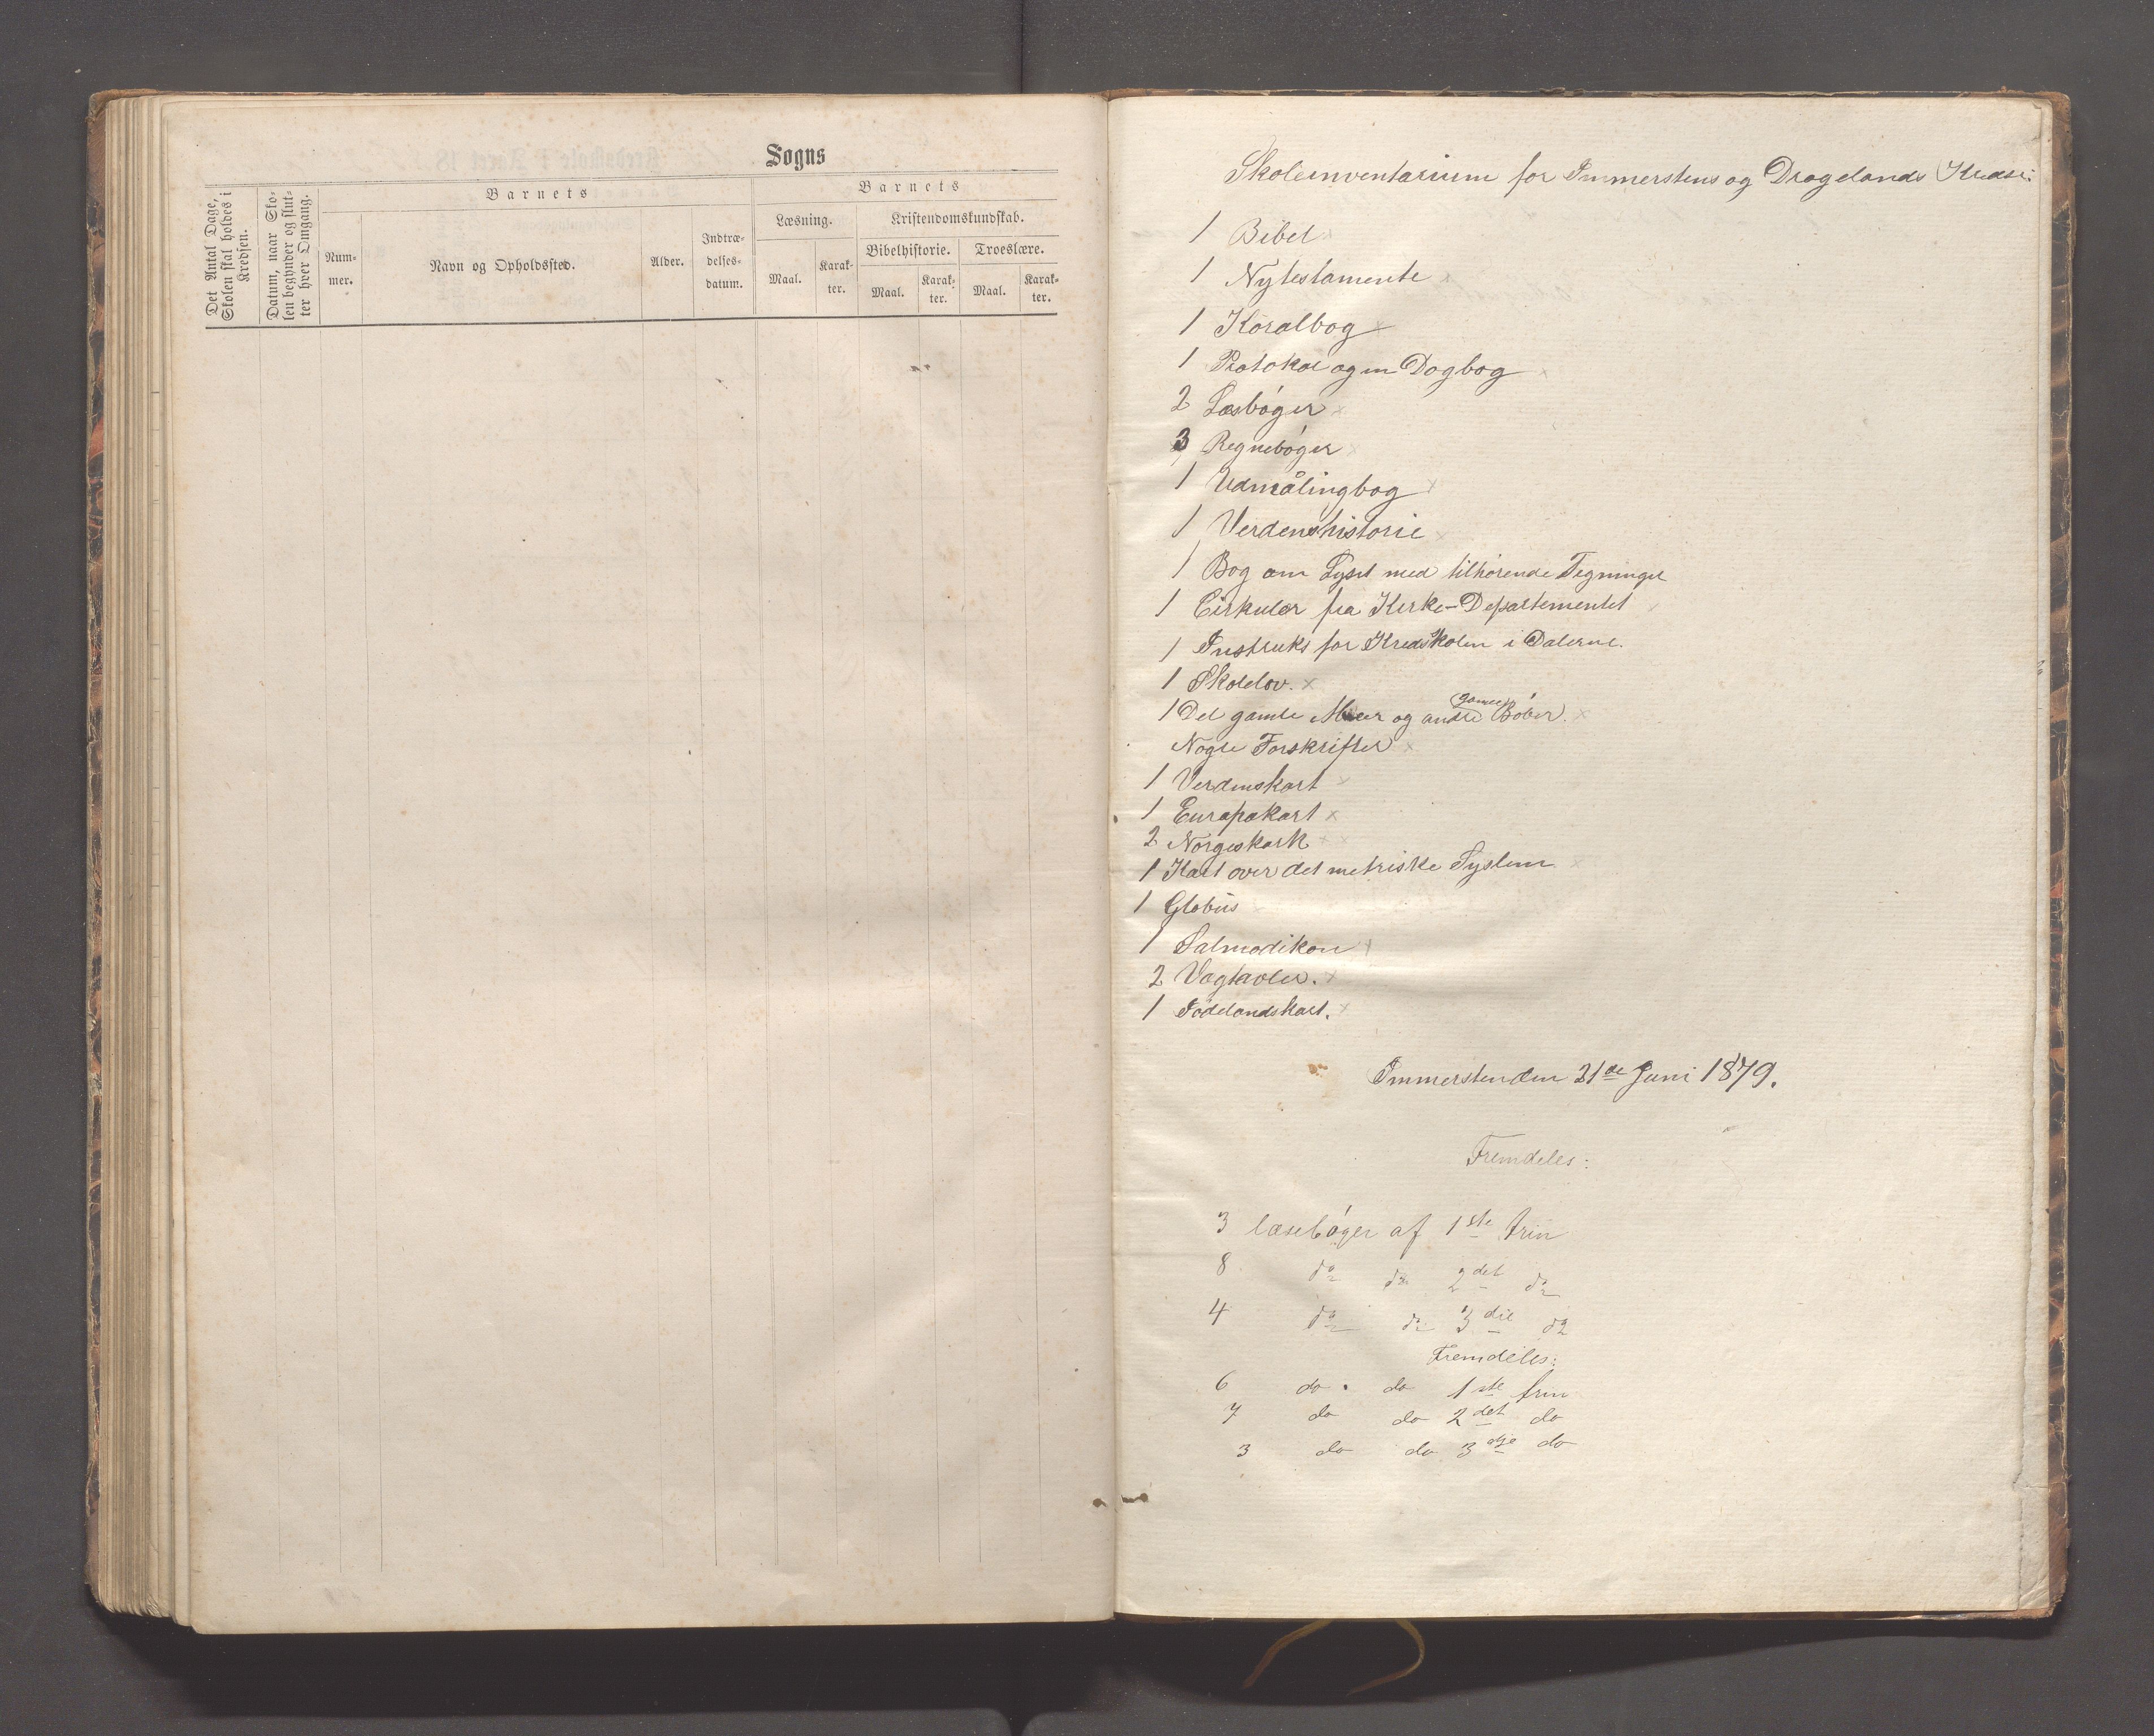 Sogns
Det Antal Dage, Skolen skal holdes i Kredsen.
Datum, naar Skolen begynder og slutter hver Omgang.
Barnets
Barnets
Nummer.
Navn og Opholdssted.
Alder.
Indtrædelsesdatum.
Læsning.
Kristendomskundskab.
Bibelhistorie.
Troeslære.
Maal.
Karakter.
Maal.
Karakter.
Maal.
Karakter.
Skoleinventarium for Immerstens og Dragelands Kredse:
1 Bibel
1 Nytestamente
1 Koralbog
1 Protokol og en Dagbog
2 Læsbøger
3 Regnebøger
1 Udmålingbog
1 Verdenshistorie
1 Bog om Lyset med tilhørende Tegninger
1 Cirkulær fra Kirke-Departementet
1 Instruks for Kredsskolen i Dalerne.
1 Skolelov.
1 Del gamle og andre Bøber.
Nogle Forskrifter
1 Verdenskart
1 Europakart
2 Norgeskark
1 Kart over det metriske System
1 Globus
1 Salmodikon
2 Vægtavler.
1 Jødelandskart.
Immersten den 21de Juni 1879.
Fremdeles:
3 læsebøger af 1ste trin
8 do do 2det do
4 do do 3die do
Fremdeles:
6 do. do 1ste trin
7 do do 2det do
3 do do 3dje do